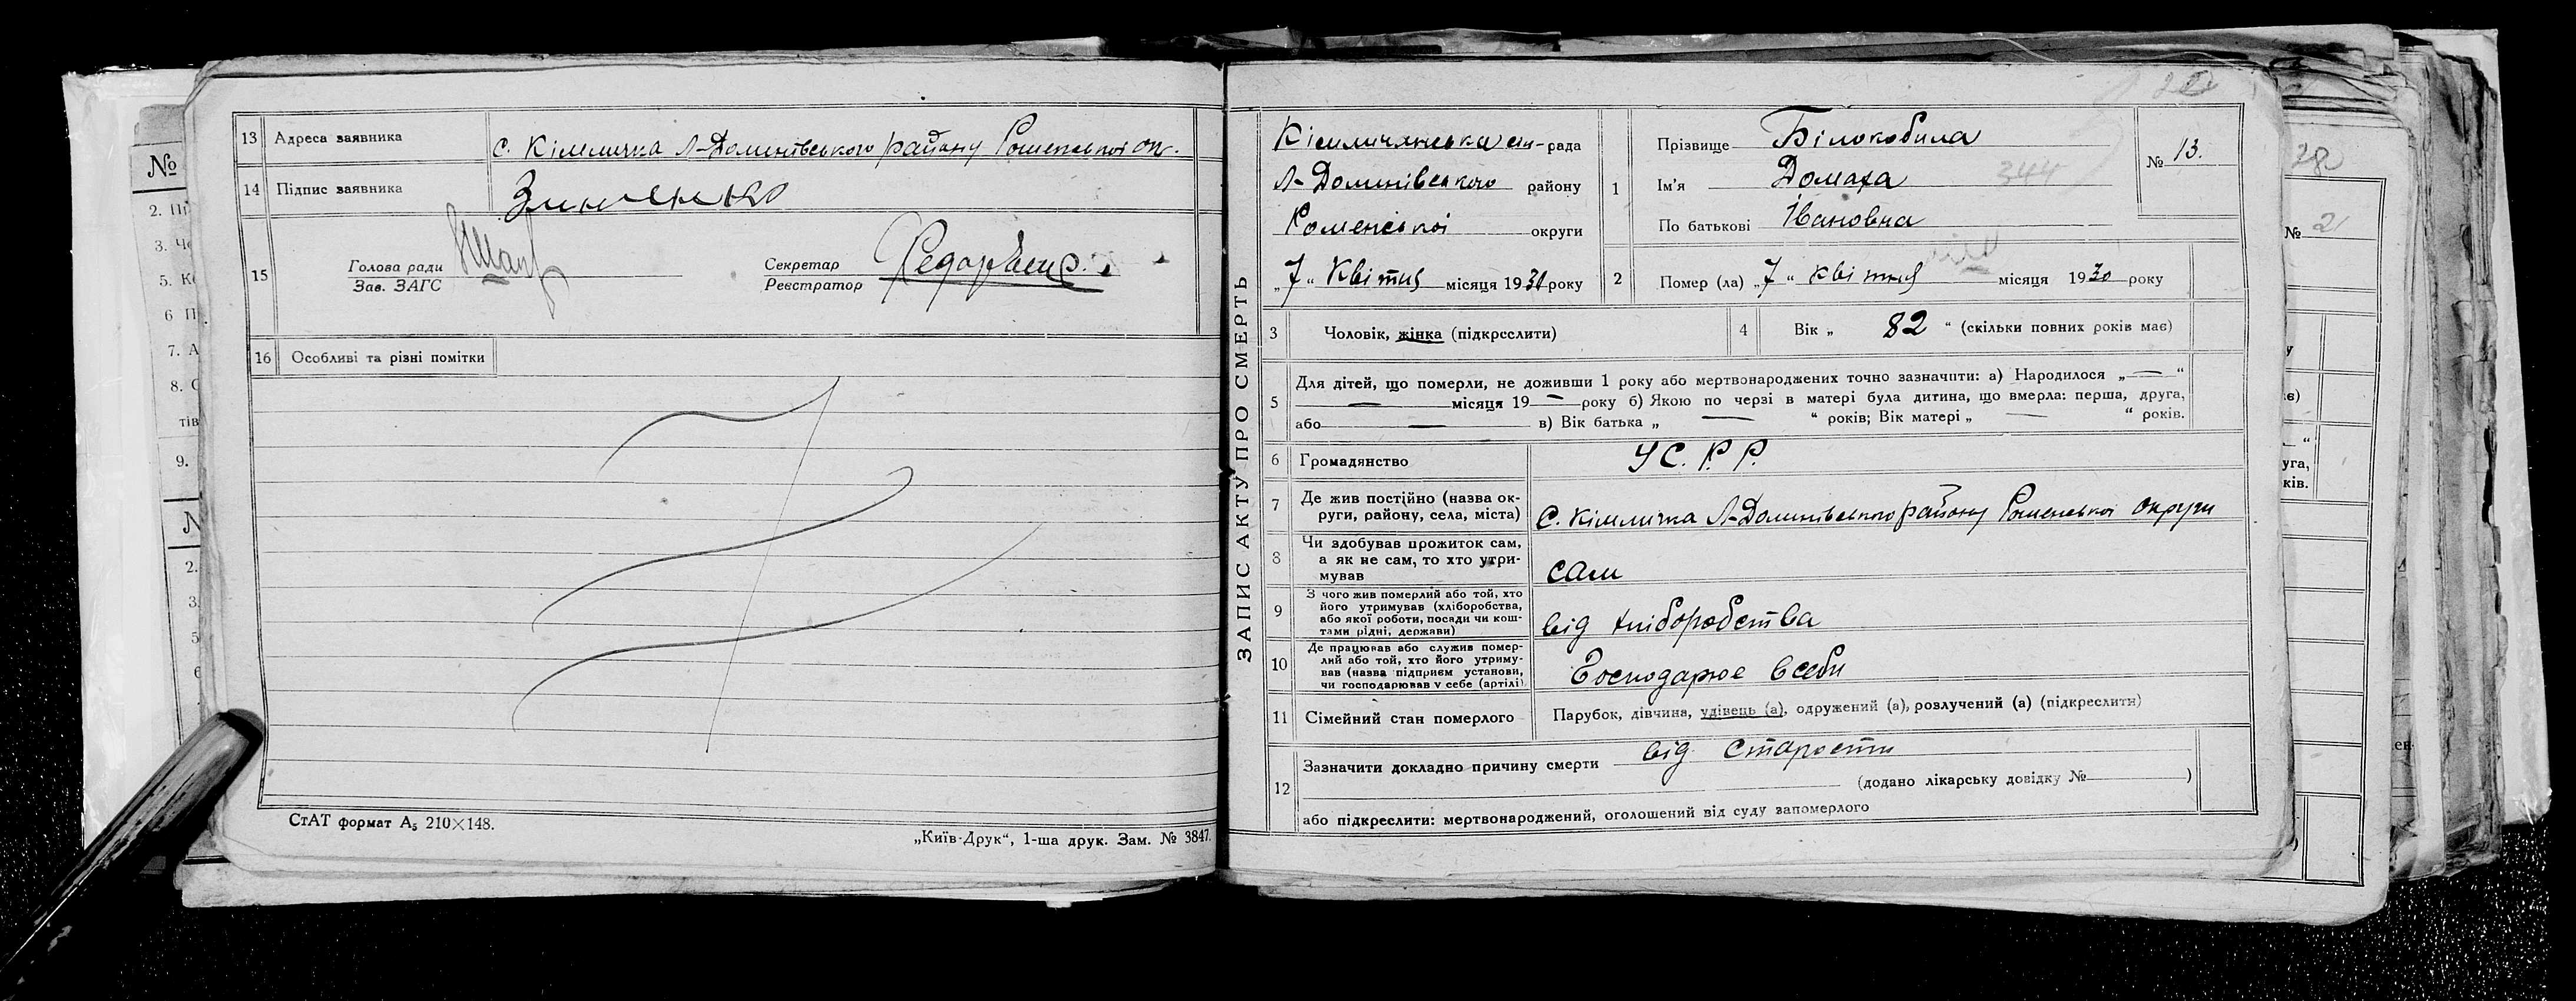 13 Адреса заявника с. Кімличка Л-Долинівського району Роменської ок.
14 Підпис заявника Зинченко
15 Голова ради
Зав. ЗАГС
Секретар
Реєстратор
16 Особливі та різні помітки
СтАТ формат А₅ 210×148.
„Київ-Друк“, 1-ша друк. Зам. № 3847.
ЗАПИС АКТУ ПРО СМЕРТЬ
Кімличанська сіл-рада
Л-Долинівського району
Роменської округи
„7“ Квітня місяця 1930 року
1 Прізвище Білокобила
Ім'я Домаха 344
По батькові Івановна
№ 13.
2 Помер (ла) „7“ квітня місяця 1930 року
3 Чоловік, жінка (підкреслити)
4 Вік „ 82 “ (скільки повних років має)
5 Для дітей, що померли, не доживши 1 року або мертвонароджених точно зазначити: а) Народилося „—“
— місяця 19 — року б) Якою по черзі в матері була дитина, що вмерла: перша, друга,
або — в) Вік батька „ — “ років; Вік матері „ — “ років.
6 Громадянство УС.Р.Р.
7 Де жив постійно (назва ок-
руги, району, села, міста) С. Кімличка Л-Долинівського району Роменської округи
8 Чи здобував прожиток сам,
а як не сам, то хто утри-
мував сам
9 З чого жив померлий або той, хто
його утримував (хліборобства,
або якої роботи, посади чи кош-
тами рідні, держави) від хліборобства
10 Де працював або служив помер-
лий або той, хто його утриму-
вав (назва підприєм установи,
чи господарював у себе (артілі) Господарює в себи
11 Сімейний стан померлого Парубок, дівчина, удівець (а), одружений (а), розлучений (а) (підкреслити)
12 Зазначити докладно причину смерти від старости
(додано лікарську довідку № )
або підкреслити: мертвонароджений, оголошений від суду запомерлого
28
№ 2